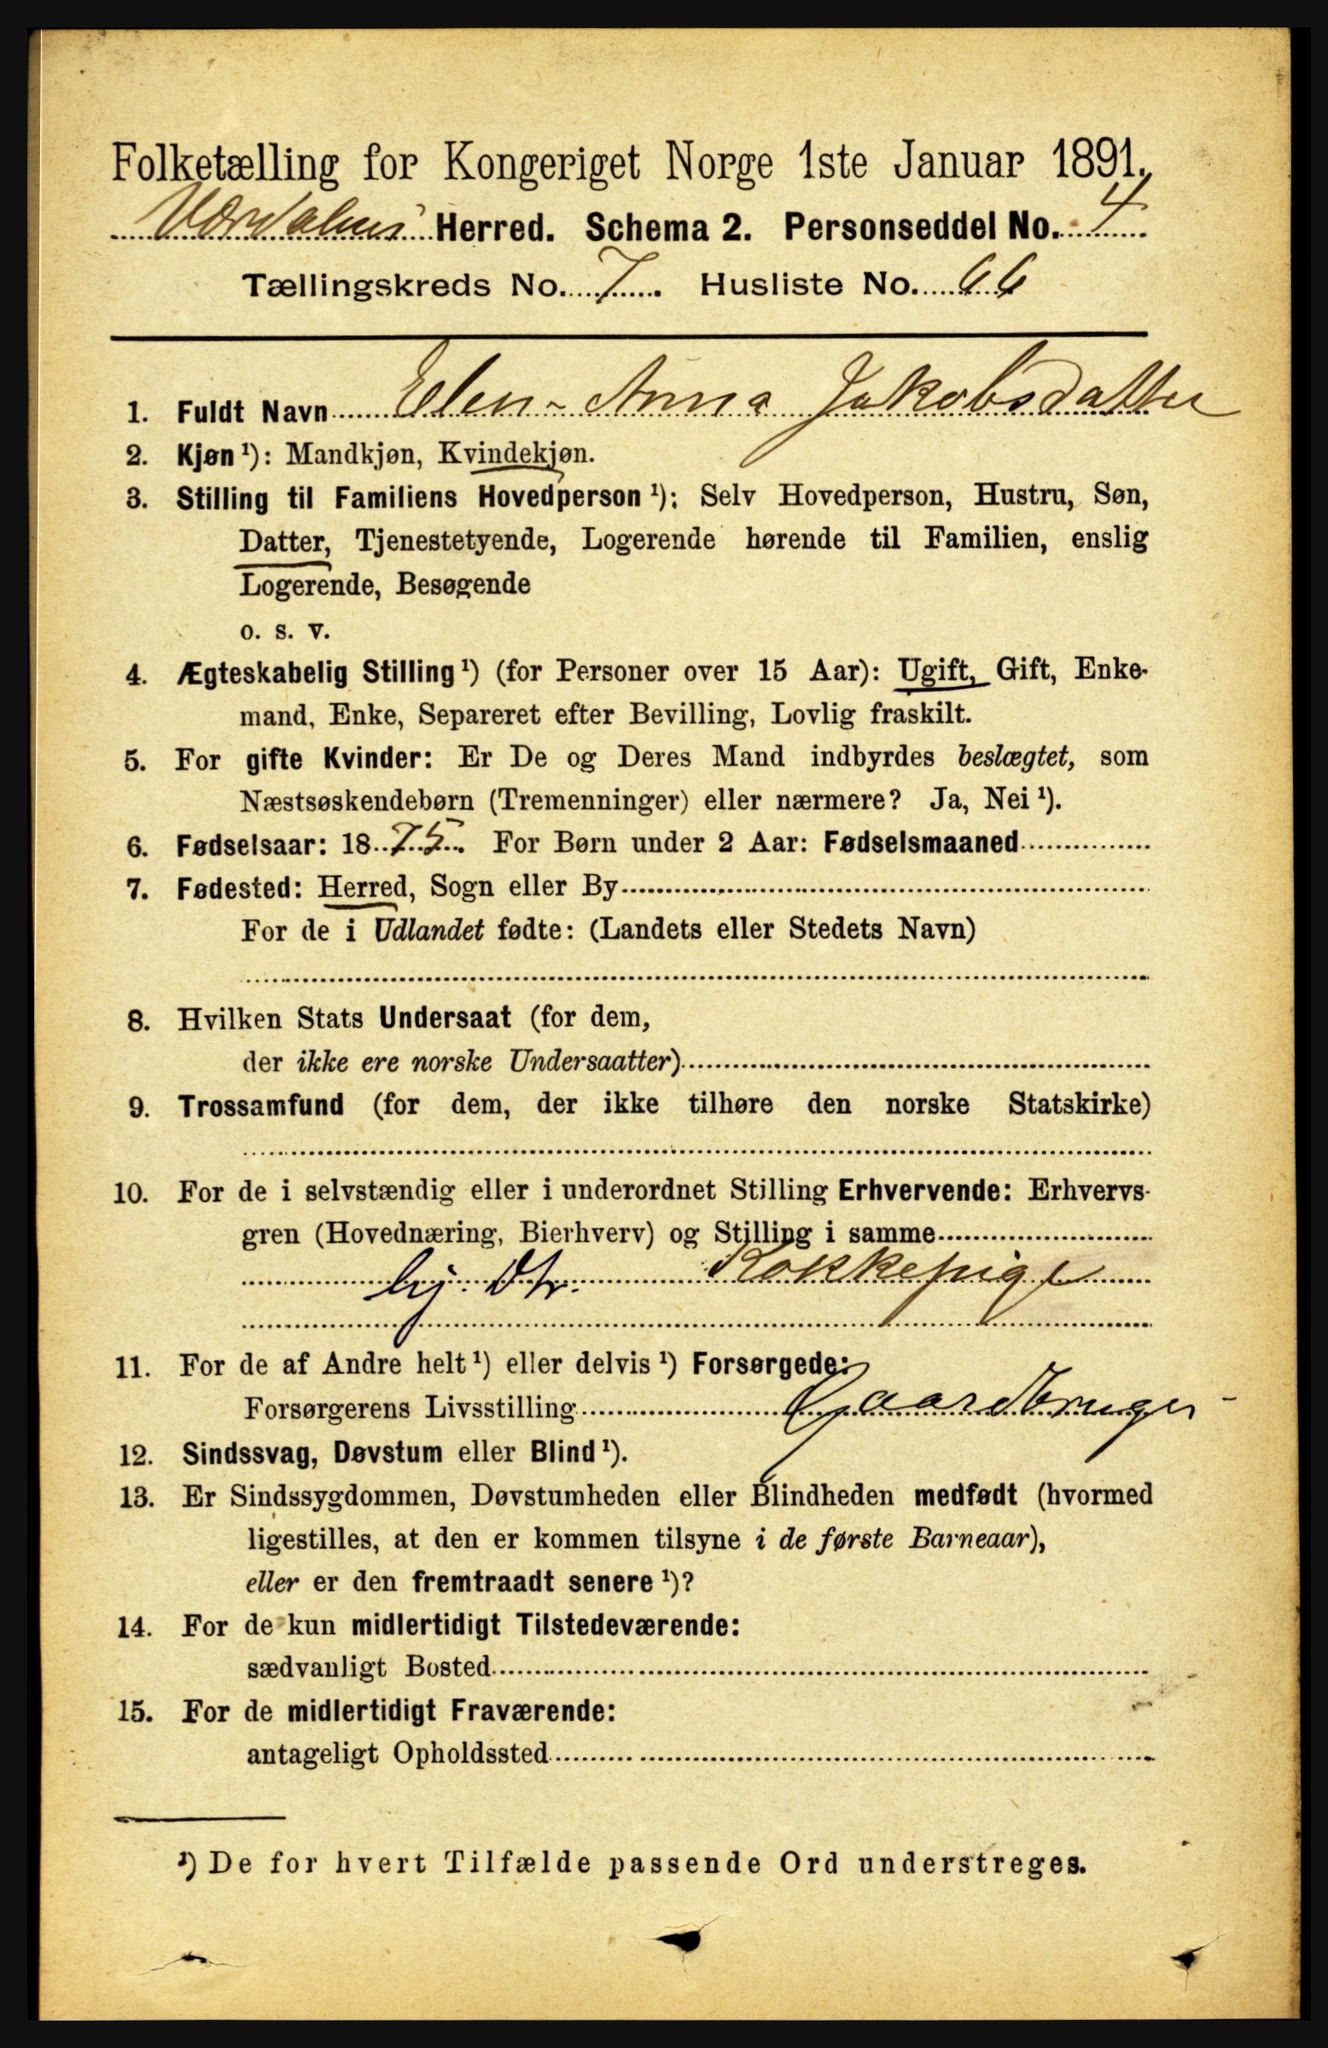 Folketælling for Kongeriget Norge 1ste Januar 1891.
Værdalens Herred. Schema 2. Personseddel No. 4
Tællingskreds No. 7. Husliste No. 66
1. Fuldt Navn Elen-Anna Jakobsdatter
2. Kjøn ¹): Mandkjøn, Kvindekjøn.
3. Stilling til Familiens Hovedperson ¹): Selv Hovedperson, Hustru, Søn,
Datter, Tjenestetyende, Logerende hørende til Familien, enslig
Logerende, Besøgende
o. s. v.
4. Ægteskabelig Stilling ¹) (for Personer over 15 Aar): Ugift, Gift, Enke-
mand, Enke, Separeret efter Bevilling, Lovlig fraskilt.
5. For gifte Kvinder: Er De og Deres Mand indbyrdes beslægtet, som
Næstsøskendebørn (Tremenninger) eller nærmere? Ja, Nei ¹).
6. Fødselsaar: 1875. For Børn under 2 Aar: Fødselsmaaned
7. Fødested: Herred, Sogn eller By
For de i Udlandet fødte: (Landets eller Stedets Navn)
8. Hvilken Stats Undersaat (for dem,
der ikke ere norske Undersaatter)
9. Trossamfund (for dem, der ikke tilhøre den norske Statskirke)
10. For de i selvstændig eller i underordnet Stilling Erhvervende: Erhvervs-
gren (Hovednæring, Bierhverv) og Stilling i samme
hj. Dtr. Kokkepige
11. For de af Andre helt ¹) eller delvis ¹) Forsørgede:
Forsørgerens Livsstilling Gaardbruger
12. Sindssvag, Døvstum eller Blind ¹).
13. Er Sindssygdommen, Døvstumheden eller Blindheden medfødt (hvormed
ligestilles, at den er kommen tilsyne i de første Barneaar),
eller er den fremtraadt senere ¹)?
14. For de kun midlertidigt Tilstedeværende:
sædvanligt Bosted
15. For de midlertidigt Fraværende:
antageligt Opholdssted
¹) De for hvert Tilfælde passende Ord understreges.